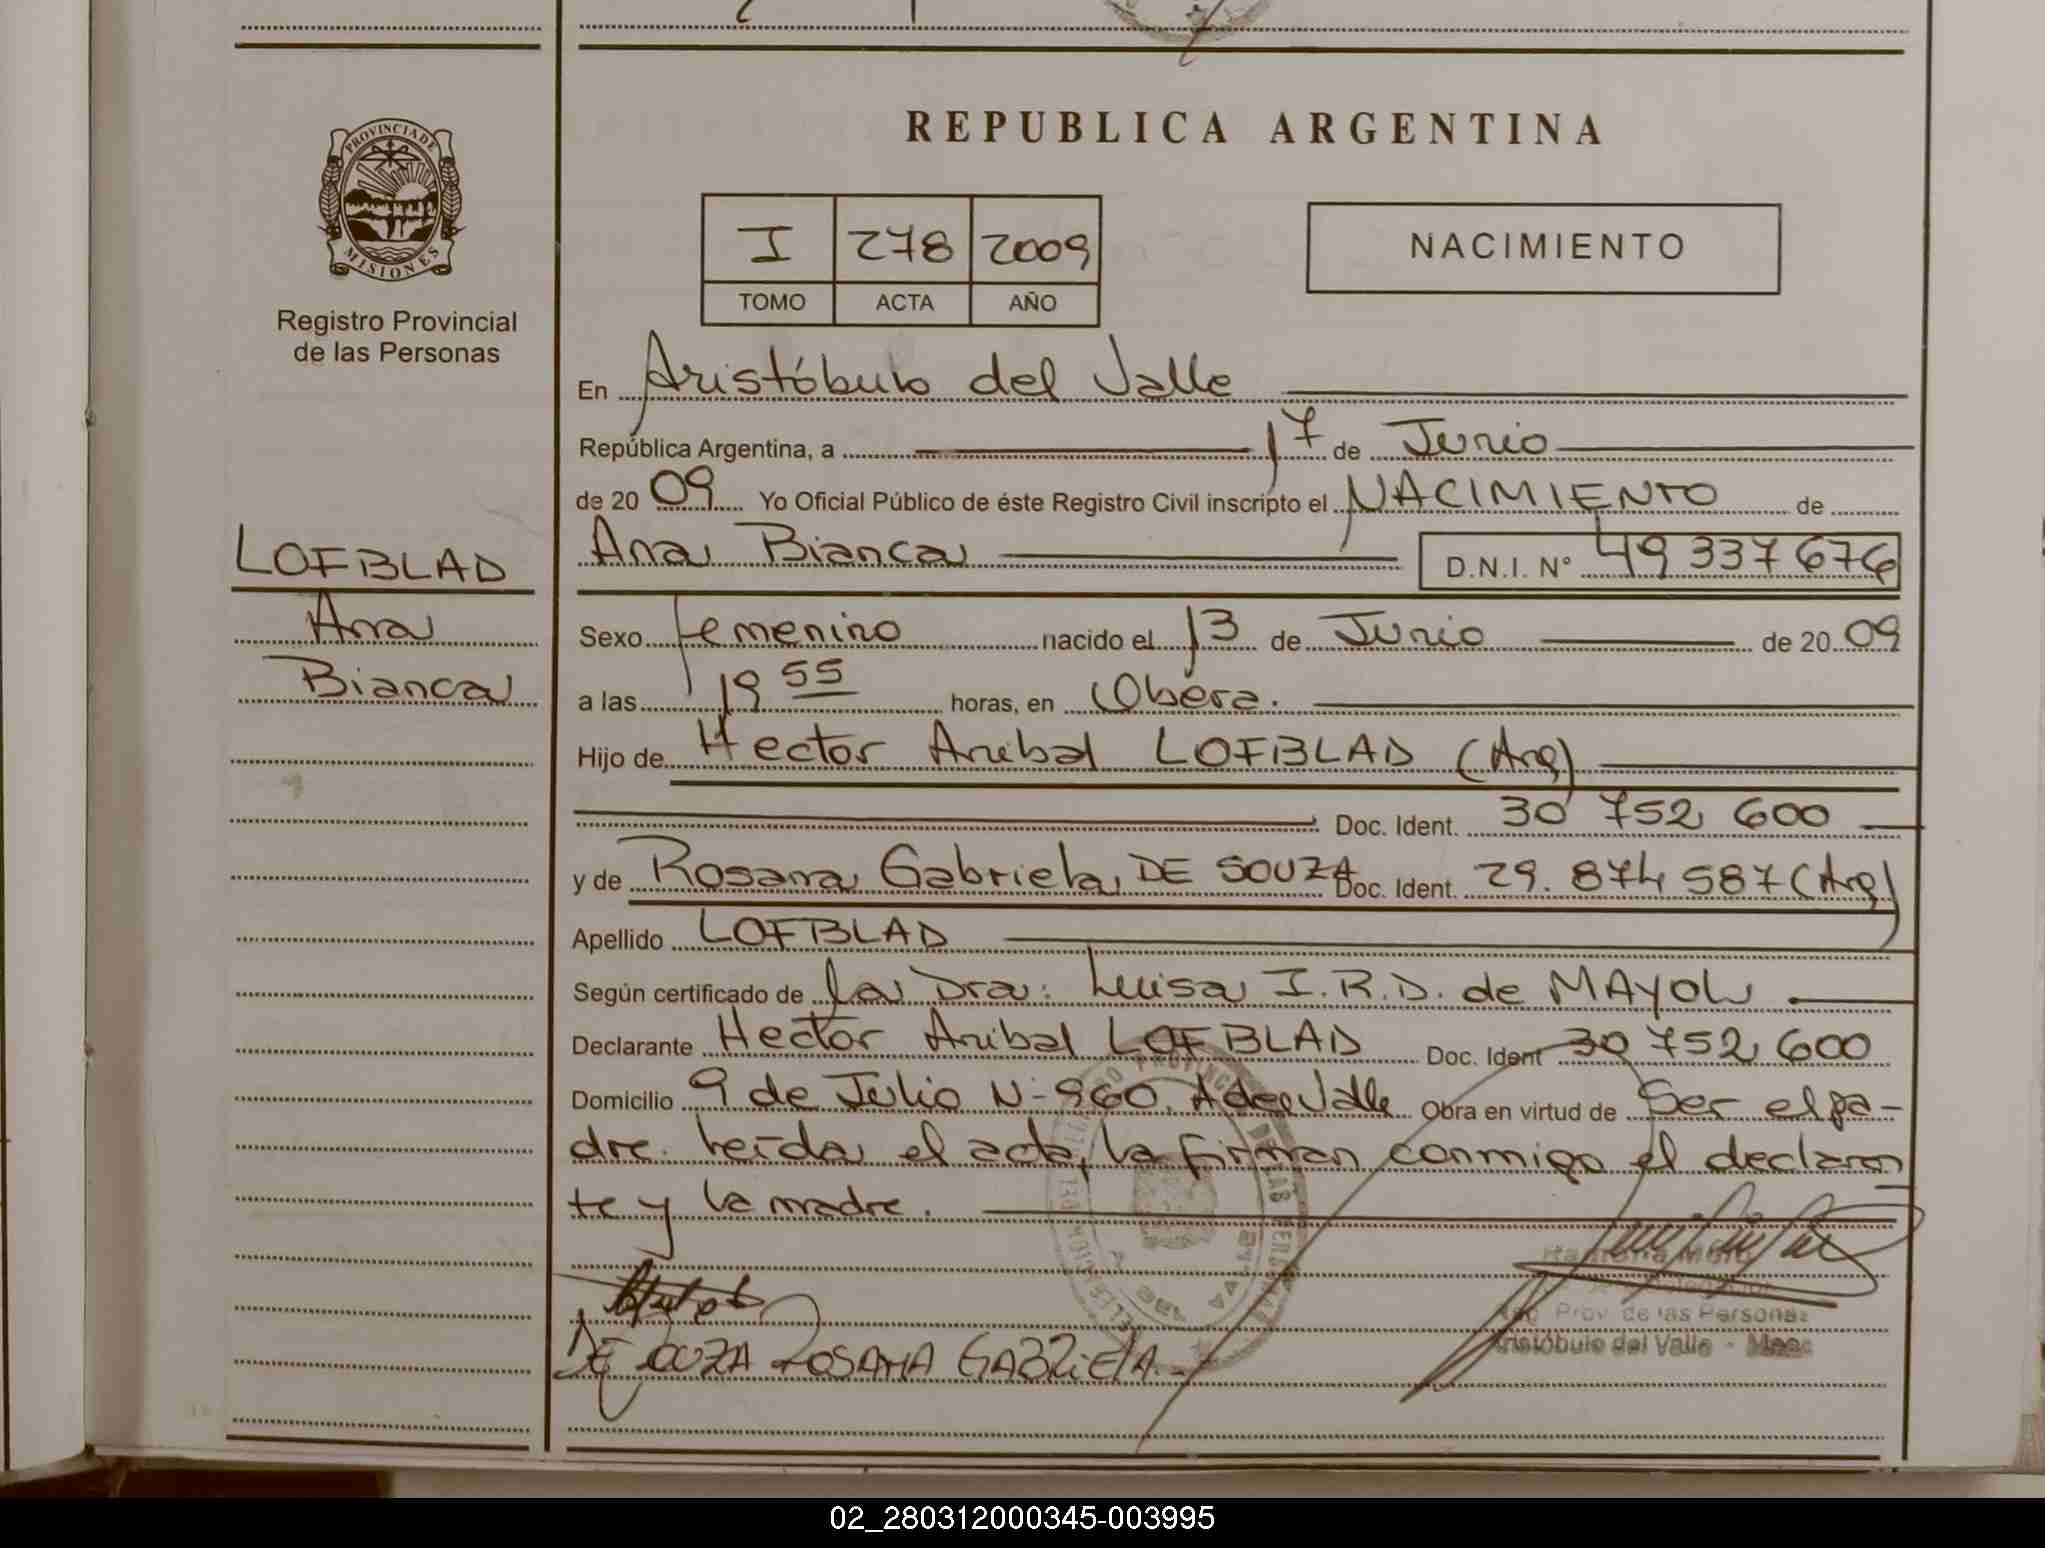 PROVINCIA DE
MISIONES
Registro Provincial
de las Personas
LOFBLAD
Ana
Bianca
REPUBLICA ARGENTINA
I 278 2009
TOMO ACTA AÑO
NACIMIENTO
En Aristóbulo del Valle
República Argentina, a 17 de Junio
de 2009 Yo Oficial Público de éste Registro Civil inscripto el NACIMIENTO de
Ana Bianca D.N.I. N° 49 337 676
Sexo femenino nacido el 13 de Junio de 2009
a las 19 55 horas, en Oberá.
Hijo de Hector Anibal LOFBLAD (Arg)
Doc. Ident. 30 752 600
y de Rosana Gabriela DE SOUZA Doc. Ident. 29.874 587 (Arg)
Apellido LOFBLAD
Según certificado de la Dra: Luisa I.R.D. de MAYOL
Declarante Hector Anibal LOFBLAD Doc. Ident 30 752 600
Domicilio 9 de Julio N- 960, A del Valle Obra en virtud de Ser el pa-
dre. Leída el acta, la firman conmigo el declaran
te y la madre.
DE SOUZA ROSANA GABRIELA.-
Prov. de las Personas
Aristóbulo del Valle - Mnes
02_280312000345-003995